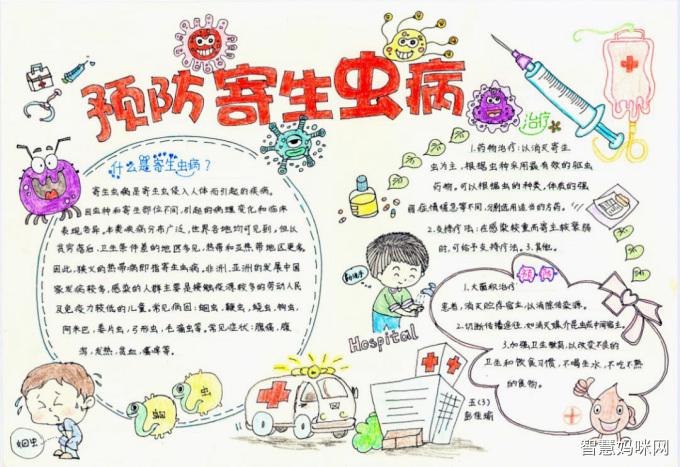 预防寄生虫病
什么是寄生虫病？
寄生虫病是寄生虫侵入人体而引起的疾病。
因虫种和寄生部位不同，引起的病理变化和临床
表现各异。本类疾病分布广泛，世界各地均可见到，但以
贫穷落后、卫生条件差的地区多见，热带和亚热带地区更多。
因此，狭义的热带病即指寄生虫病。非洲、亚洲的发展中国
家发病较多，感染的人群主要是接触疫源较多的劳动人民
及免疫力较低的儿童。常见病因：蛔虫，鞭虫，蛲虫，钩虫，
阿米巴，毒片虫，弓形虫，毛滴虫等。常见症状：腹痛，腹
泻，发热，贫血，瘙痒等。
蛔虫
虫
治疗
1.药物治疗：以消灭寄生
虫为主，根据虫种采用最有效的驱虫
药物。可以根据虫的种类，体质的强
弱，症情缓急等不同，分别选用适当的方药。
2.支持疗法：在感染较重而寄主较药弱
时，可给予支持疗法。3.其他。
勤洗手
Hospital
预防
1.大面积治疗
患者，消灭贮存宿主，以消除传染源。
2.切断传播途径，如消灭媒介昆虫或中间宿主。
3.加强卫生教育，以改变不良的
卫生和饮食习惯，不喝生水，不吃不熟
的食物。
五(3)
智慧妈咪网